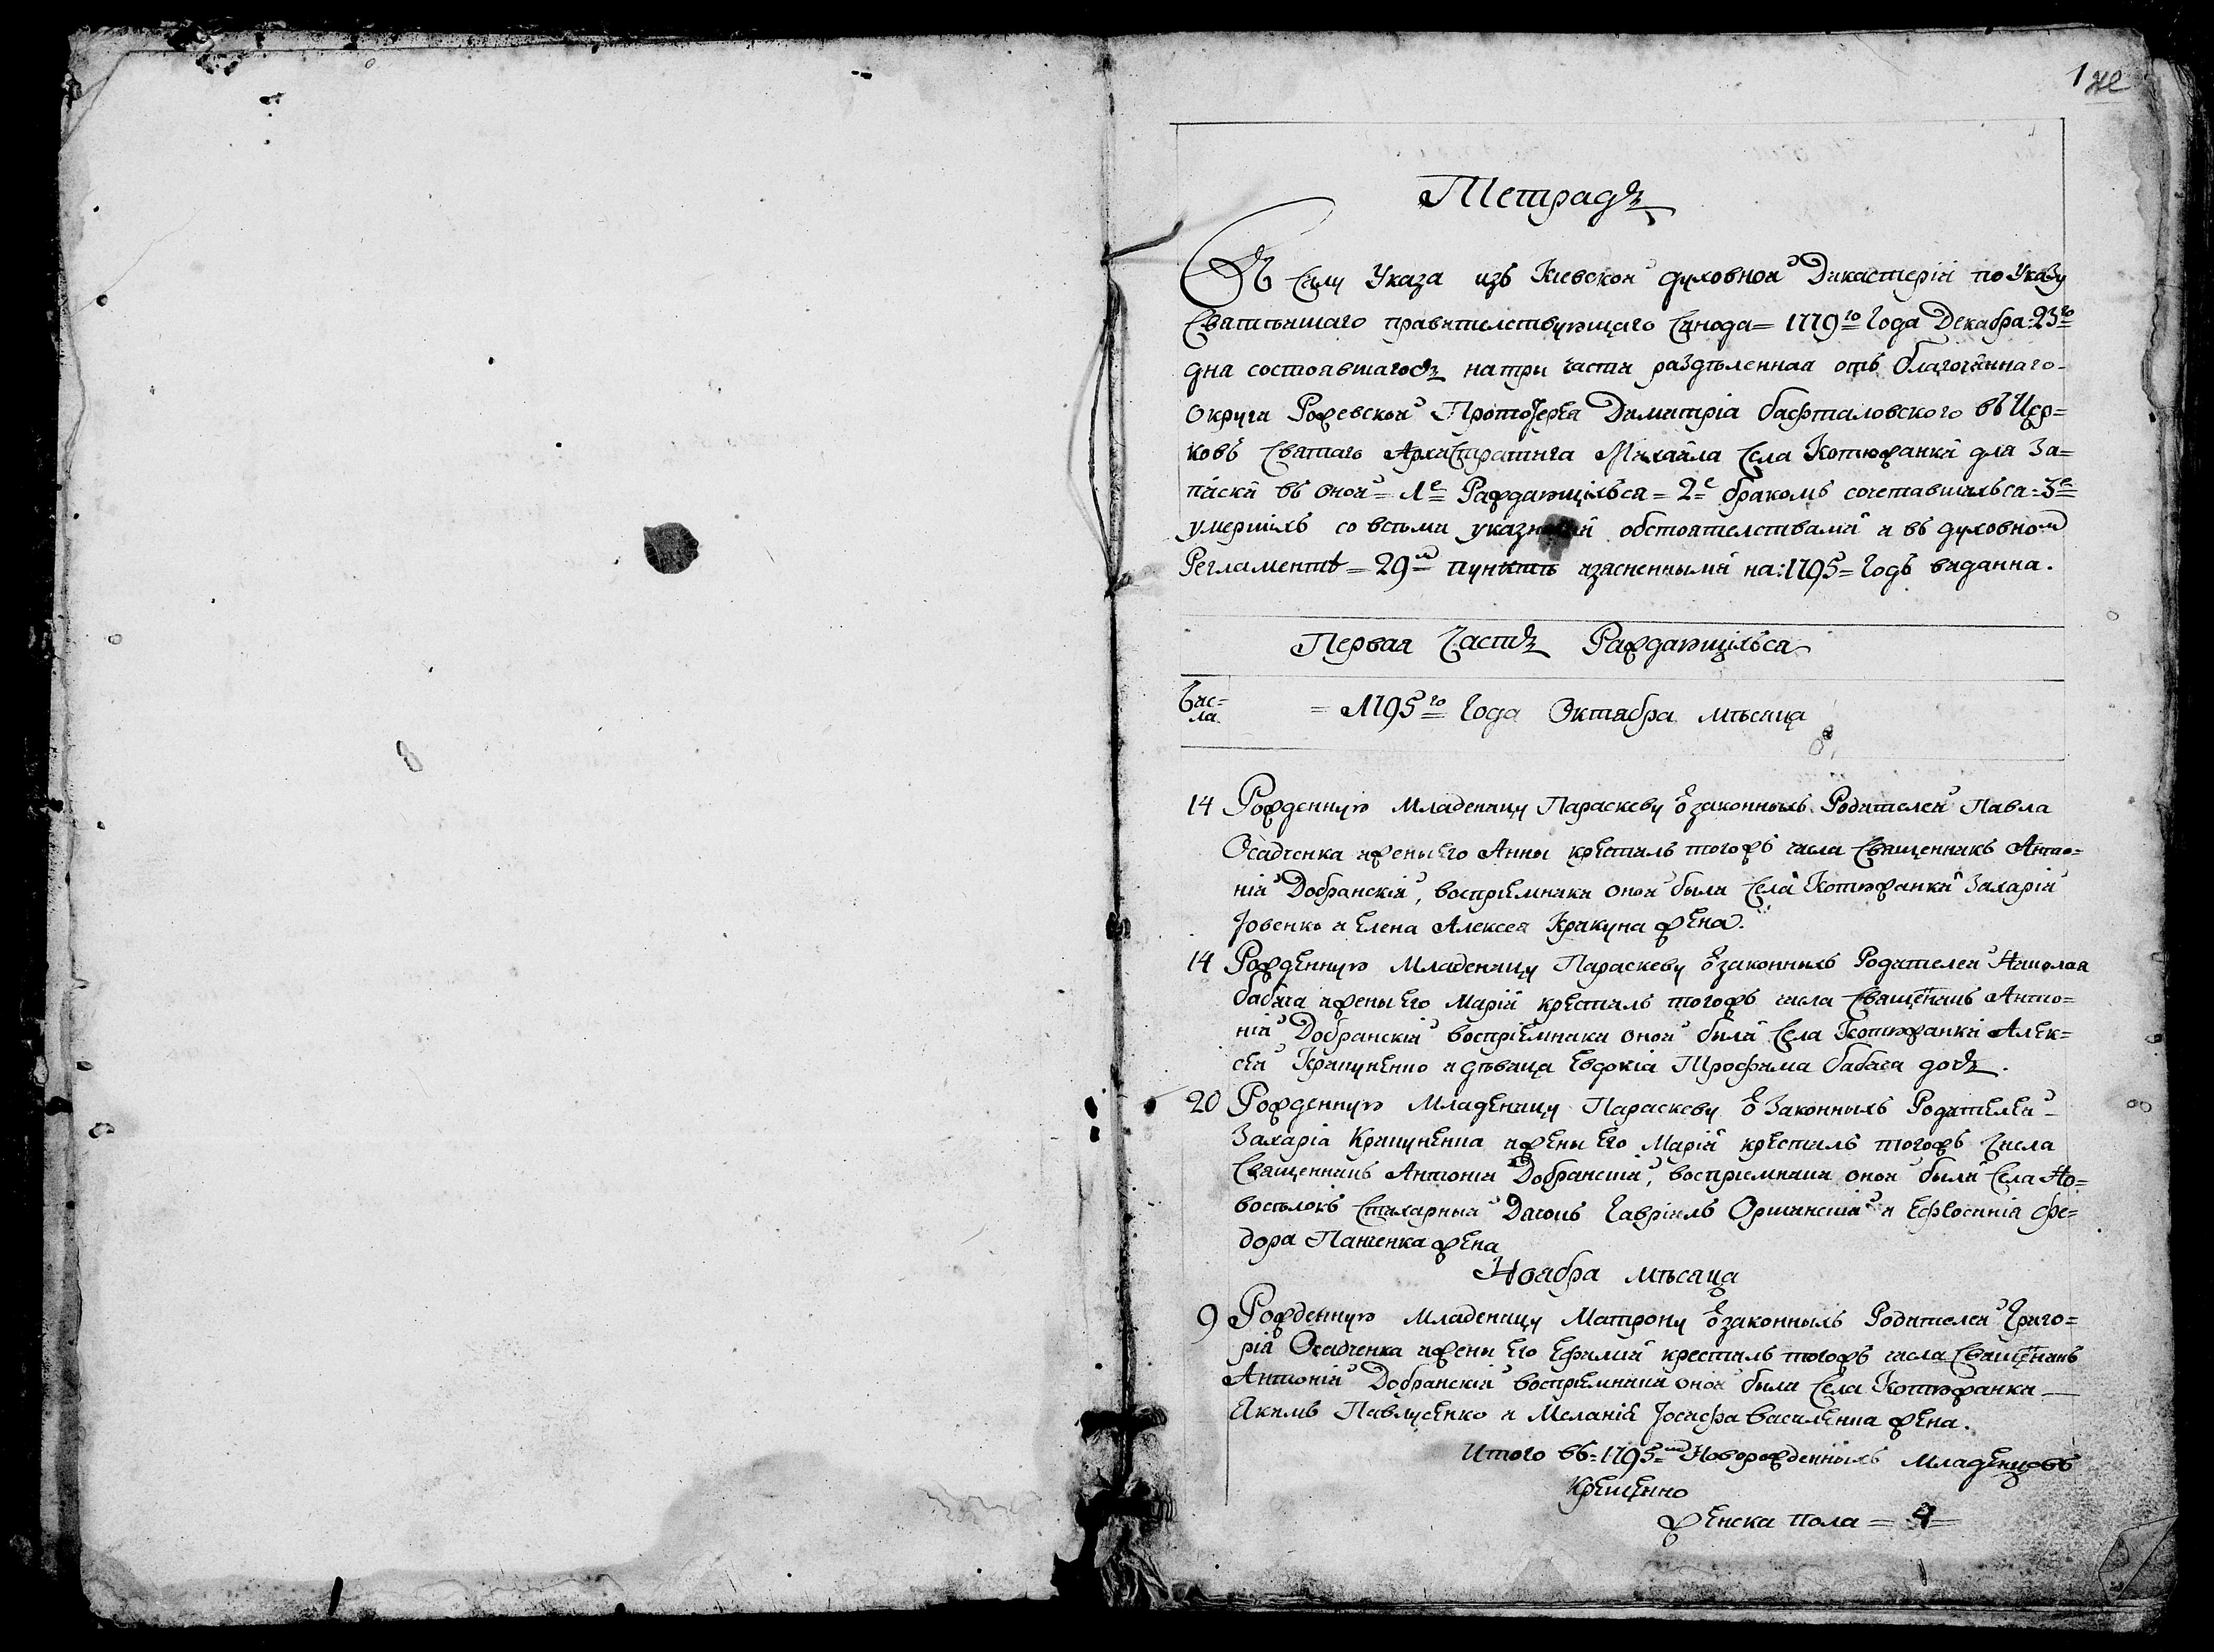 1
Тетрадь
Въ Силу Указа изъ Кіевской духовной Дикастеріи по Указу
Святѣйшаго правителствующаго Сѵнода = 1779го Года Декабра = 23го
дня состоявшагось на три части раздѣленная отъ благочиннаго
округи Рожевской Протоіерея Димитріа Бафталовского въ Цер=
ковъ Святаго Архистратига Михаила Села Котюжанки для За=
писки въ оной = 1е Раждающіхъся = 2е бракомъ сочетавшихъся = 3е
умершіхъ со всѣми указными обстоятелствами и въ духовном
Регламентѣ = 29м пунктѣ изясненными на: 1795 = Годъ видання.
Первая Часть Раждающіхъся
Чис=
ла.
= 1795го Года Октября мѣсяца
14 Рожденную Младеницу Параскеву ѿ законныхъ Родителей Павла
Осадченка и жены Его Анны крестилъ тогожъ числа Священникъ Анто=
ній Добранскій, воспріемники оной были Села Котюжанки Захарій
Іовенко и Елена Алексея Кракуна жена.
14 Рожденную Младеницу Параскеву ѿ законныхъ Родителей Николая
бабича и жены Его Маріи крестилъ тогожъ числа Священикъ Анто=
ній Добранскій воспріемники оной были Села Котюжанки Алек=
сей Крикуненко и дѣвица Евдокіа Трофима бабича дочь.
20 Рожденную Младеницу Параскеву ѿ Законныхъ Родителей
Захаріа Крикуненка и жены Его Маріи крестилъ тогожъ Числа
Священникъ Антоній Добранскій, воспріемники оной были Села Но=
воселокъ Стихарный Дячокъ Гавріилъ Оришинскій и Ефросинія Фе=
дора Панченка жена
Ноября мѣсяца
9 Рожденную Младеницу Матрону ѿ законныхъ Родителей Григо=
рія Осадченка и жены Его Ефимии крестилъ тогожъ числа Священикъ
Антоній Добранскій воспріемники оной были Села Котюжанки
Якимъ Павлусенко и Меланія Іосифа Василенка жена.
Итого въ = 1795м Новорожденныхъ Младенцовъ
Крещенно
женска пола = 4 =